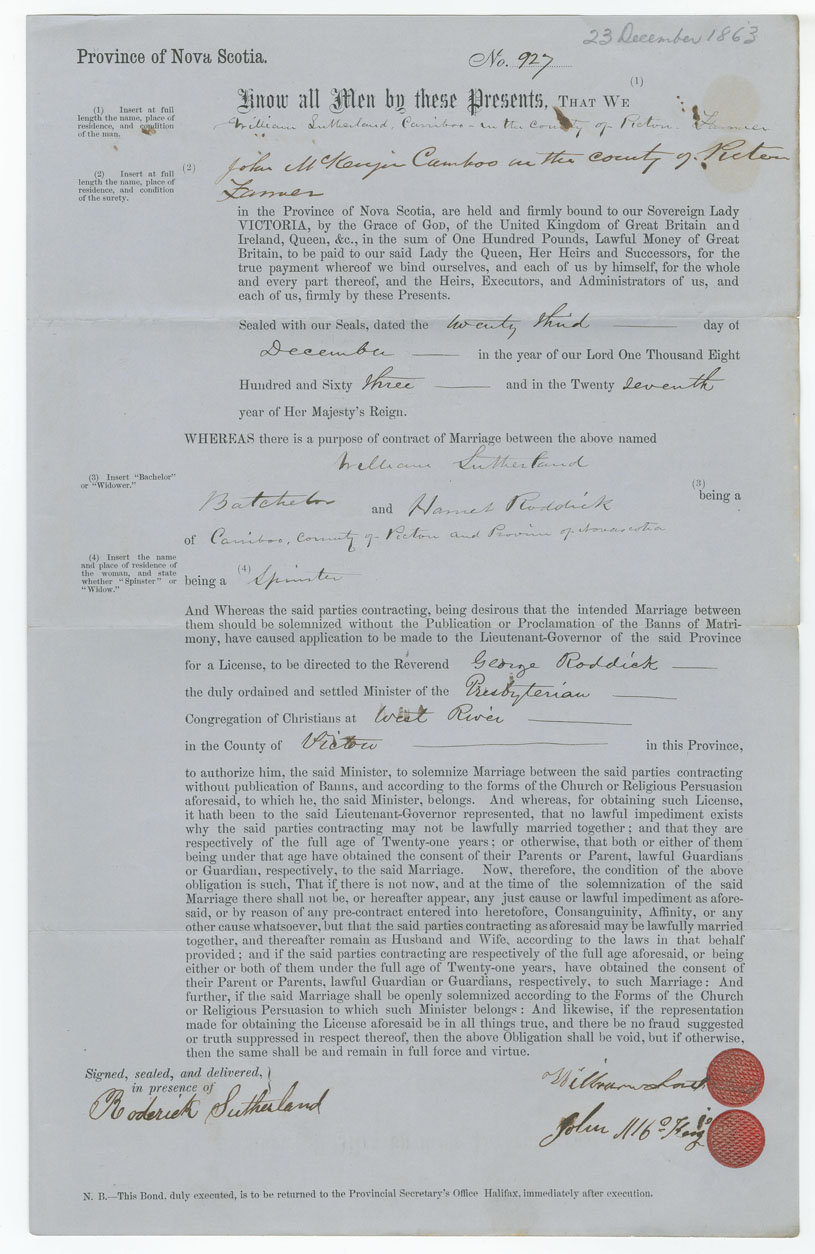 23 December 1863
Province of Nova Scotia.
No. 927
(1)
Know all Men by these Presents, THAT WE
(1) Insert at full
length the name, place of
residence, and condition
of the man.
William Sutherland, Carriboo - in the county of Picton. Farmer
(2)
John McKenzie Carriboo in the county of Picton
Farmer
(2) Insert at full
length the name, place of
residence, and condition
of the surety.
in the Province of Nova Scotia, are held and firmly bound to our Sovereign Lady
VICTORIA, by the Grace of GOD, of the United Kingdom of Great Britain and
Ireland, Queen, &c., in the sum of One Hundred Pounds, Lawful Money of Great
Britain, to be paid to our said Lady the Queen, Her Heirs and Successors, for the
true payment whereof we bind ourselves, and each of us by himself, for the whole
and every part thereof, and the Heirs, Executors, and Administrators of us, and
each of us, firmly by these Presents.
Sealed with our Seals, dated the twenty third day of
December in the year of our Lord One Thousand Eight
Hundred and Sixty three and in the Twenty seventh
year of Her Majesty's Reign.
WHEREAS there is a purpose of contract of Marriage between the above named
William Sutherland
(3) Insert "Bachelor"
or "Widower."
(3)
being a
Batchelor and Harriet Roddick
of Carriboo, County of Picton and Province of Novascotia
(4) Insert the name
and place of residence of
the woman, and state
whether "Spinster" or
"Widow."
being a (4) Spinster
And Whereas the said parties contracting, being desirous that the intended Marriage between
them should be solemnized without the Publication or Proclamation of the Banns of Matri-
mony, have caused application to be made to the Lieutenant-Governor of the said Province
for a License, to be directed to the Reverend George Roddick
the duly ordained and settled Minister of the Presbyterian
Congregation of Christians at West River
in the County of Picton in this Province,
to authorize him, the said Minister, to solemnize Marriage between the said parties contracting
without publication of Banns, and according to the forms of the Church or Religious Persuasion
aforesaid, to which he, the said Minister, belongs. And whereas, for obtaining such License,
it hath been to the said Lieutenant-Governor represented, that no lawful impediment exists
why the said parties contracting may not be lawfully married together; and that they are
respectively of the full age of Twenty-one years; or otherwise, that both or either of them
being under that age have obtained the consent of their Parents or Parent, lawful Guardians
or Guardian, respectively, to the said Marriage. Now, therefore, the condition of the above
obligation is such, That if there is not now, and at the time of the solemnization of the said
Marriage there shall not be, or hereafter appear, any just cause or lawful impediment as afore-
said, or by reason of any pre-contract entered into heretofore, Consanguinity, Affinity, or any
other cause whatsoever, but that the said parties contracting as aforesaid may be lawfully married
together, and thereafter remain as Husband and Wife, according to the laws in that behalf
provided; and if the said parties contracting are respectively of the full age aforesaid, or being
either or both of them under the full age of Twenty-one years, have obtained the consent of
their Parent or Parents, lawful Guardian or Guardians, respectively, to such Marriage: And
further, if the said Marriage shall be openly solemnized according to the Forms of the Church
or Religious Persuasion to which such Minister belongs: And likewise, if the representation
made for obtaining the License aforesaid be in all things true, and there be no fraud suggested
or truth suppressed in respect thereof, then the above Obligation shall be void, but if otherwise,
then the same shall be and remain in full force and virtue.
Signed, sealed, and delivered,
in presence of
Roderick Sutherland
William
John
N. B.—This Bond, duly executed, is to be returned to the Provincial Secretary's Office Halifax, immediately after execution.